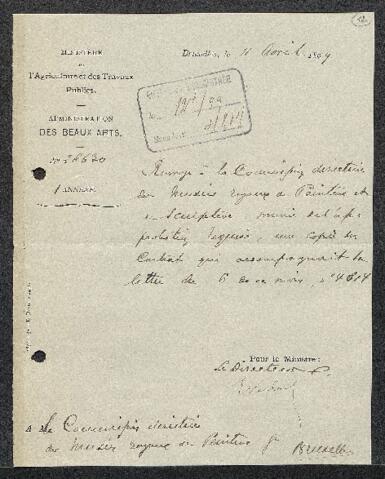 MINISTÈRE
de
l'Agriculture et des Travaux
Publics.
ADMINISTRATION
DES BEAUX ARTS.
1 ANNEXE
Bruxelles, le 11 Avril
Renvoyé à la Commission directrice
des Musées royaux de Peinture et
de Sculpture, munie de l'ap-
probation requise, une copie du
Contrat qui accompagnait la
lettre du 6 de ce mois, n° 4614
Pour le Ministre:
Le Directeur
A la Commission directrice
des Musées royaux de Peinture
Bruxelles